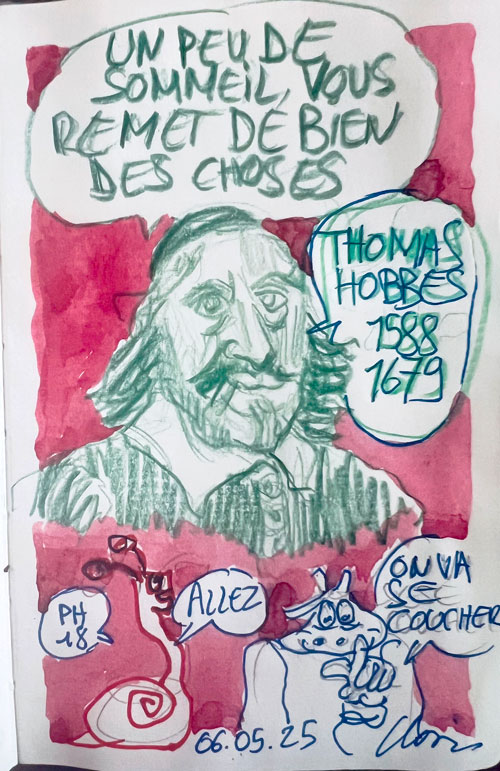 UN PEU DE
SOMMEIL, VOUS
REMET DE BIEN
DES CHOSES
THOMAS
HOBBES
1588
1679
PH
18
ALLEZ
ON VA
SE
COUCHER
06.05.25